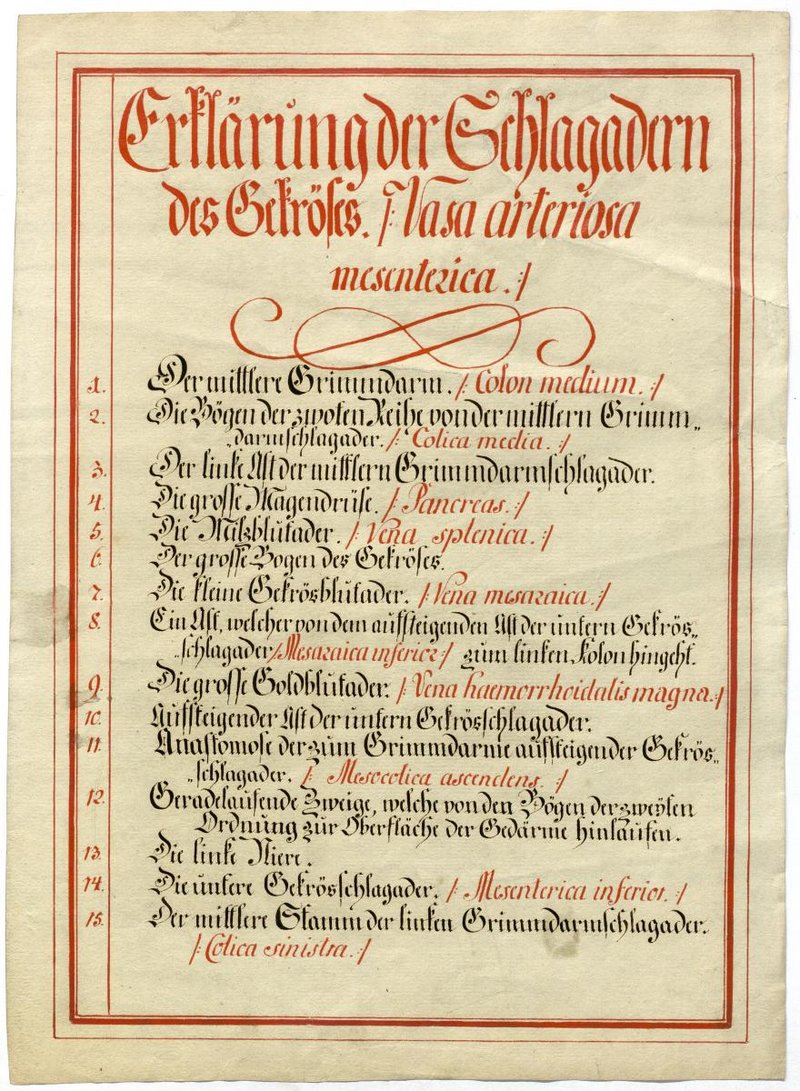 Erklärung der Schlagadern
des Gekröses. /: Vasa arteriosa
mesenterica. :/
1. Der mittlere Grimmdarm. /: Colon medium. :/
2. Die Bögen der zwoten Reihe von der mittlern Grimm„
„darmschlagader. /: Colica media. :/
3. Der linke Ast der mittlern Grimmdarmschlagader.
4. Die grosse Magendrüse. /: Pancreas. :/
5. Die Milzblutader. /: Vena splenica. :/
6. Der grosse Bogen des Gekröses.
7. Die kleine Gekrösblutader. /: Vena mesaraica. :/
8. Ein Ast, welcher von dem aufsteigenden Ast der untern Gekrös„
„schlagader /: Mesaraica inferior :/ zum linken Kolon hingeht.
9. Die grosse Goldblutader. /: Vena haemorrhoidalis magna. :/
10. Aufsteigender Ast der untern Gekrösschlagader.
11. Anastomose der zum Grimmdarme aufsteigender Gekrös„
„schlagader. /: Mesocolica ascendens. :/
12. Geradelaufende Zweige, welche von den Bögen der zweyten
Ordnung zur Oberfläche der Gedärme hinlaufen.
13. Die linke Niere.
14. Die untere Gekrösschlagader. /: Mesenterica inferior. :/
15. Der mittlere Stamm der linken Grimmdarmschlagader.
/: Colica sinistra. :/